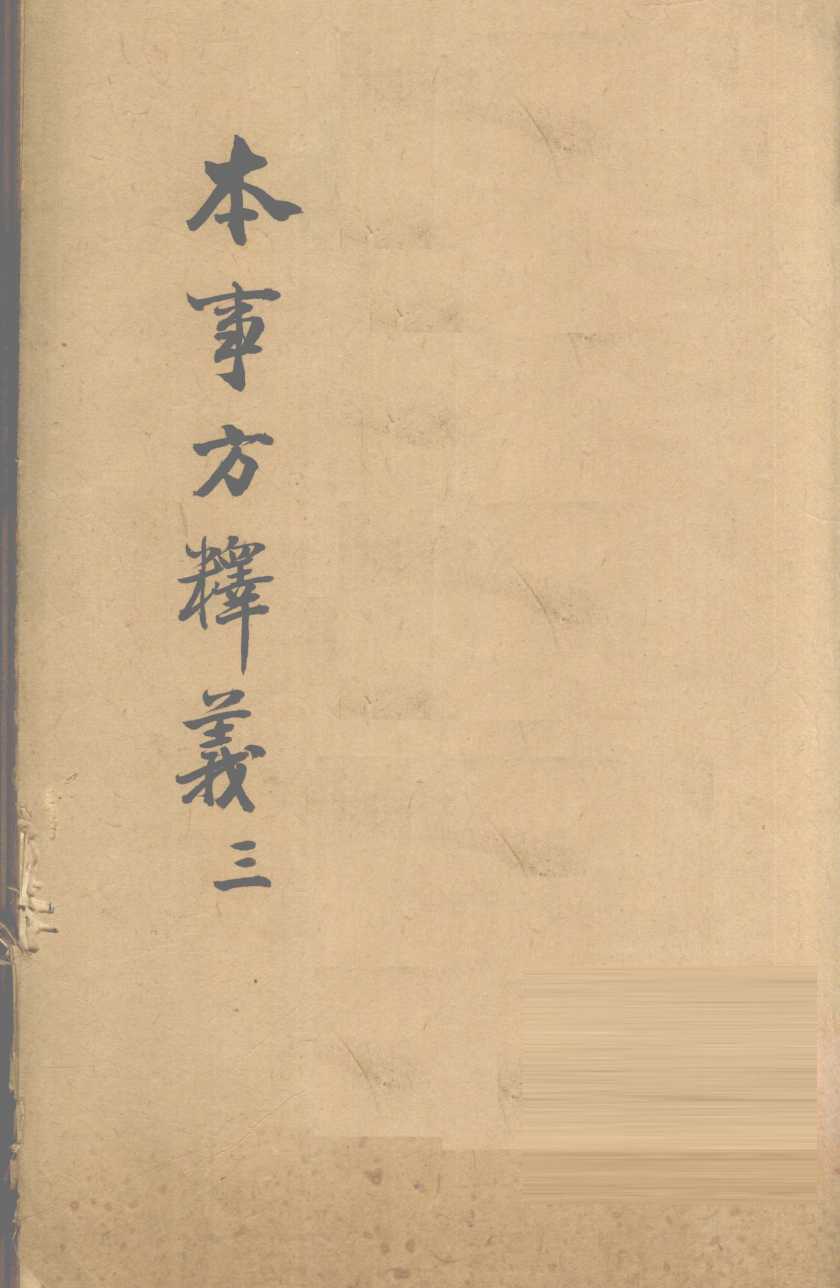 本事方釋義三